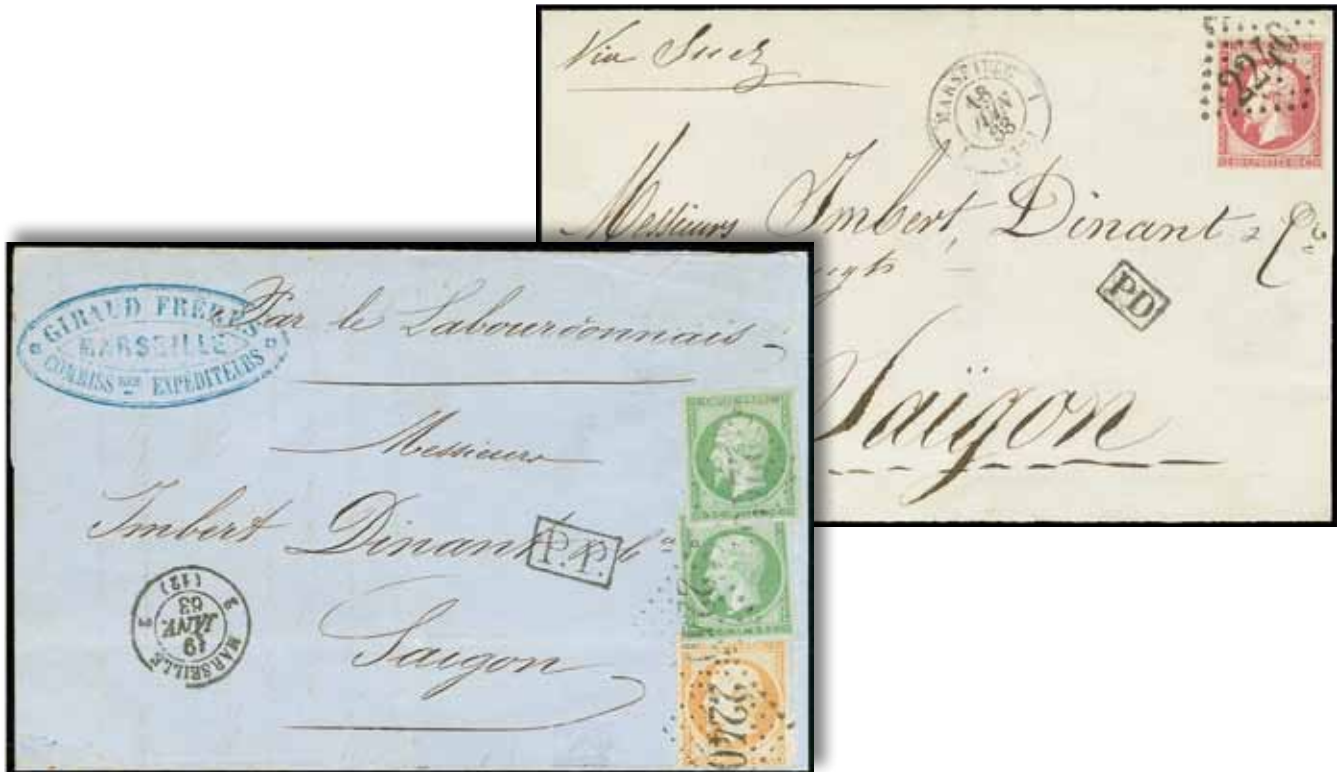 Via Suez
MARSEILLE 1
18
JUIN
63
2240
Messieurs Imbert, Dinant & Cie
PD
Saïgon
GIRAUD FRÈRES
MARSEILLE
COMMISS.RES EXPÉDITEURS
Par le Labourdonnais
Messieurs
Imbert Dinant & Cie
P.P.
Saigon
3 MARSEILLE 3
19
JANV.
63
(12)
2240